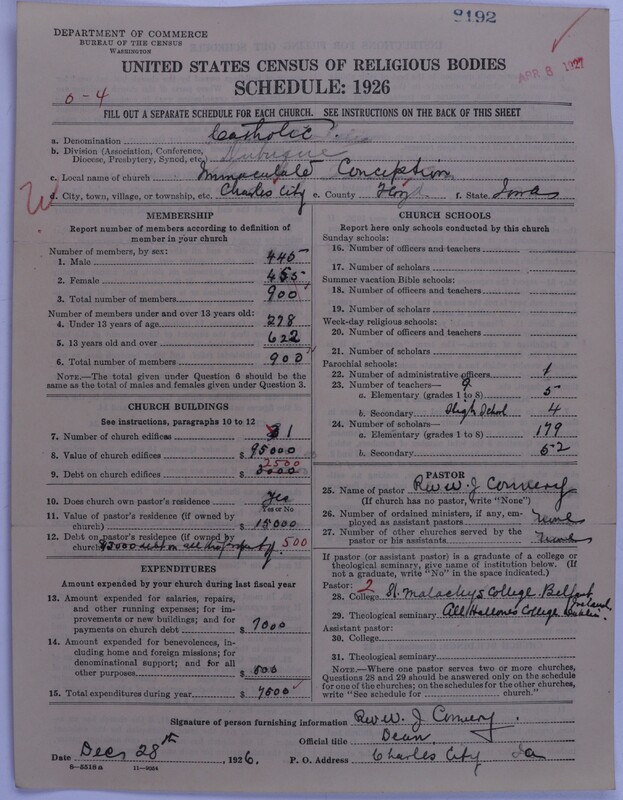 8192
DEPARTMENT OF COMMERCE
BUREAU OF THE CENSUS
WASHINGTON
UNITED STATES CENSUS OF RELIGIOUS BODIES
SCHEDULE: 1926
APR 8 1927
0-4
FILL OUT A SEPARATE SCHEDULE FOR EACH CHURCH. SEE INSTRUCTIONS ON THE BACK OF THIS SHEET
a. Denomination Catholic
b. Division (Association, Conference, Diocese, Presbytery, Synod, etc.) Dubuque
c. Local name of church Immaculate Conception
d. City, town, village, or township, etc. Charles City e. County Floyd f. State Iowa
MEMBERSHIP
Report number of members according to definition of member in your church
Number of members, by sex:
1. Male 445
2. Female 455
3. Total number of members 900
Number of members under and over 13 years old:
4. Under 13 years of age 278
5. 13 years old and over 622
6. Total number of members 900
NOTE.—The total given under Question 6 should be the same as the total of males and females given under Question 3.
CHURCH BUILDINGS
See instructions, paragraphs 10 to 12
7. Number of church edifices 1
8. Value of church edifices $ 95000
9. Debt on church edifices $ 2500
10. Does church own pastor's residence Yes
Yes or No
11. Value of pastor's residence (if owned by church) $ 15000
12. Debt on pastor's residence (if owned by church) $3000 debt on all the property 500
EXPENDITURES
Amount expended by your church during last fiscal year
13. Amount expended for salaries, repairs, and other running expenses; for improvements or new buildings; and for payments on church debt $ 7000
14. Amount expended for benevolences, including home and foreign missions; for denominational support; and for all other purposes $ 500
15. Total expenditures during year $ 7500
CHURCH SCHOOLS
Report here only schools conducted by this church
Sunday schools:
16. Number of officers and teachers
17. Number of scholars
Summer vacation Bible schools:
18. Number of officers and teachers
19. Number of scholars
Week-day religious schools:
20. Number of officers and teachers
21. Number of scholars
Parochial schools:
22. Number of administrative officers 1
23. Number of teachers— 9
a. Elementary (grades 1 to 8) 5
b. Secondary High School 4
24. Number of scholars—
a. Elementary (grades 1 to 8) 179
b. Secondary 52
PASTOR
25. Name of pastor Rev W. J. Convery
(If church has no pastor, write "None")
26. Number of ordained ministers, if any, employed as assistant pastors None
27. Number of other churches served by the pastor or his assistants None
If pastor (or assistant pastor) is a graduate of a college or theological seminary, give name of institution below. (If not a graduate, write "No" in the space indicated.)
Pastor: 2
28. College St. Malachys College. Belfast Ireland
29. Theological seminary All Hallows College Dublin.
Assistant pastor:
30. College
31. Theological seminary
NOTE.—Where one pastor serves two or more churches, Questions 28 and 29 should be answered only on the schedule for one of the churches; on the schedules for the other churches, write "See schedule for church."
Signature of person furnishing information Rev W. J. Convery.
Official title Dean
Date Dec 28th, 1926. P. O. Address Charles City Ia
8—5518a 11—9034